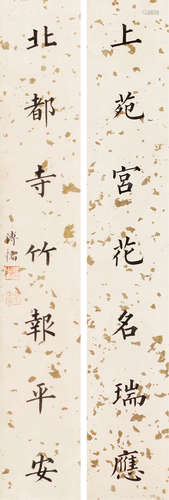 上苑宮花名瑞應
北都寺竹報平安
溥儒